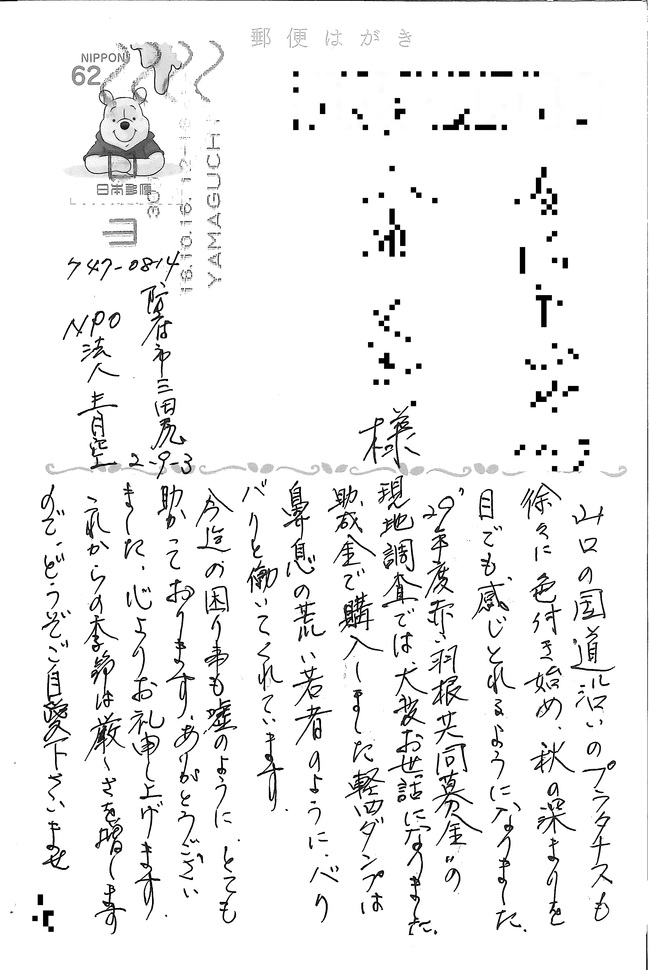 郵便はがき
NIPPON
62
日本郵便
YAMAGUCHI
18.10.16. 12-18
様
747-0814
防府市三田尻
2-9-3
NPO
法人青空
山口の国道沿いのプラタナスも
徐々に色付き始め、秋の深まりを
目でも感じとれるようになりました。
"29年度赤い羽根共同募金"の
現地調査では、大変お世話になりました。
助成金で購入しました軽四ダンプは
鼻息の荒い若者のように、バリ
バリと働いてくれています。
今迄の困り事も嘘のように、とても
助かっております。ありがとうござい
ました。心よりお礼申し上げます。
これからの季節は厳しさを増します
ので、どうぞご自愛下さいませ